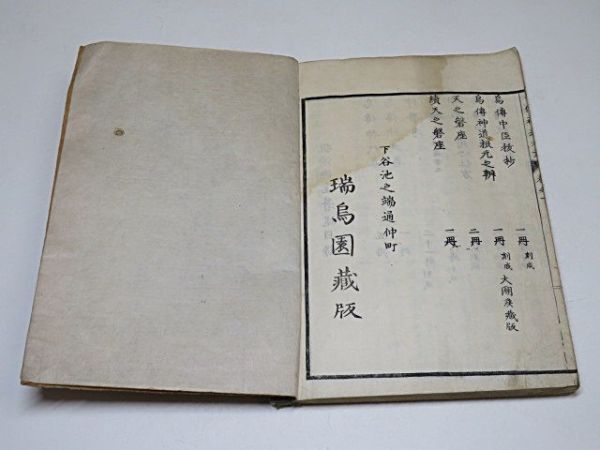 烏傳中臣祓抄 一冊 刻成
烏傳神道根元之辨 一冊 刻成 大關侯藏版
天之磐座 二冊
續天之磐座 一冊
下谷池之端通仲町
瑞烏園藏版